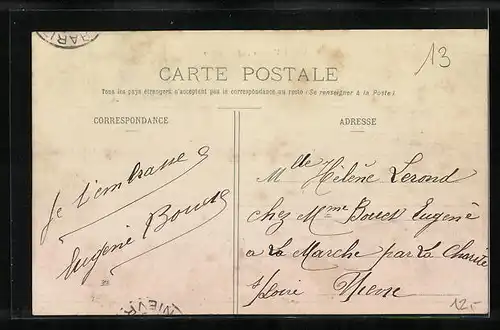 PARI
13
CARTE POSTALE
Tous les pays étrangers n'acceptent pas la correspondance au recto (Se renseigner à la Poste)
CORRESPONDANCE
ADRESSE
Je t'embrasse
Eugénie
Mlle Hélène Lerond
chez Mme Eugène
a La Marche par La Charité
s/Loire Nièvre
NIEVR
12.-